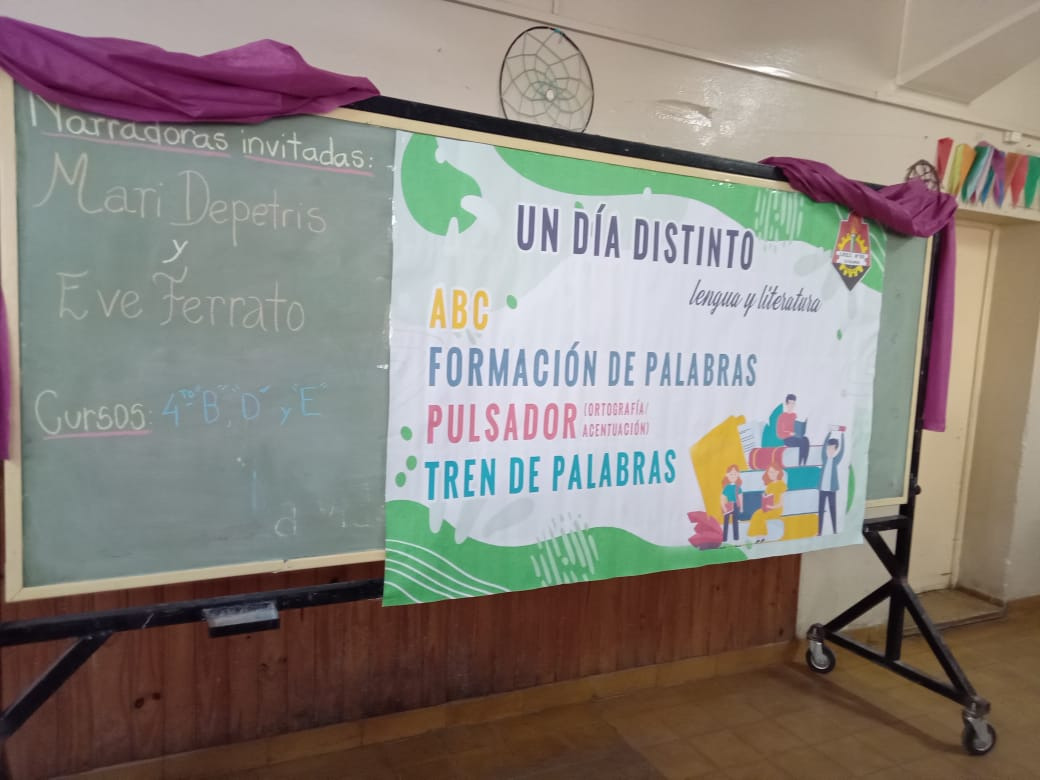 Narradoras invitadas:
Mari Depetris
y
Eve Ferrato
Cursos: 4to "B", "D" y "E"
UN DÍA DISTINTO
lengua y literatura
ABC
FORMACIÓN DE PALABRAS
PULSADOR (ORTOGRAFÍA/
ACENTUACIÓN)
TREN DE PALABRAS